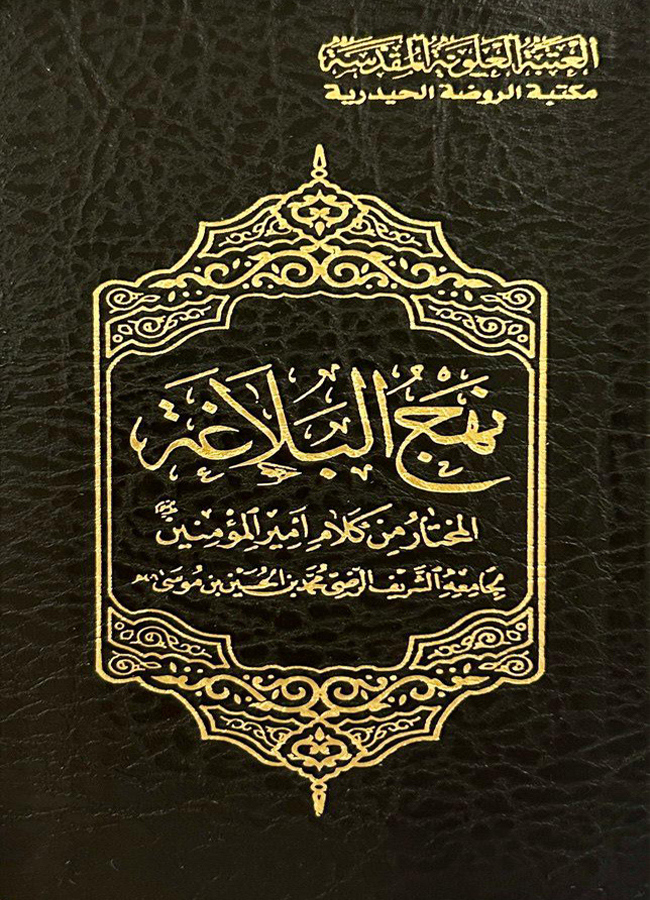 العتبة العلوية المقدسة
مكتبة الروضة الحيدرية
نَهْجُ البَلَاغَة
المختار من كلام أمير المؤمنين
لجامعه الشريف الرضي محمد بن الحسين بن موسى